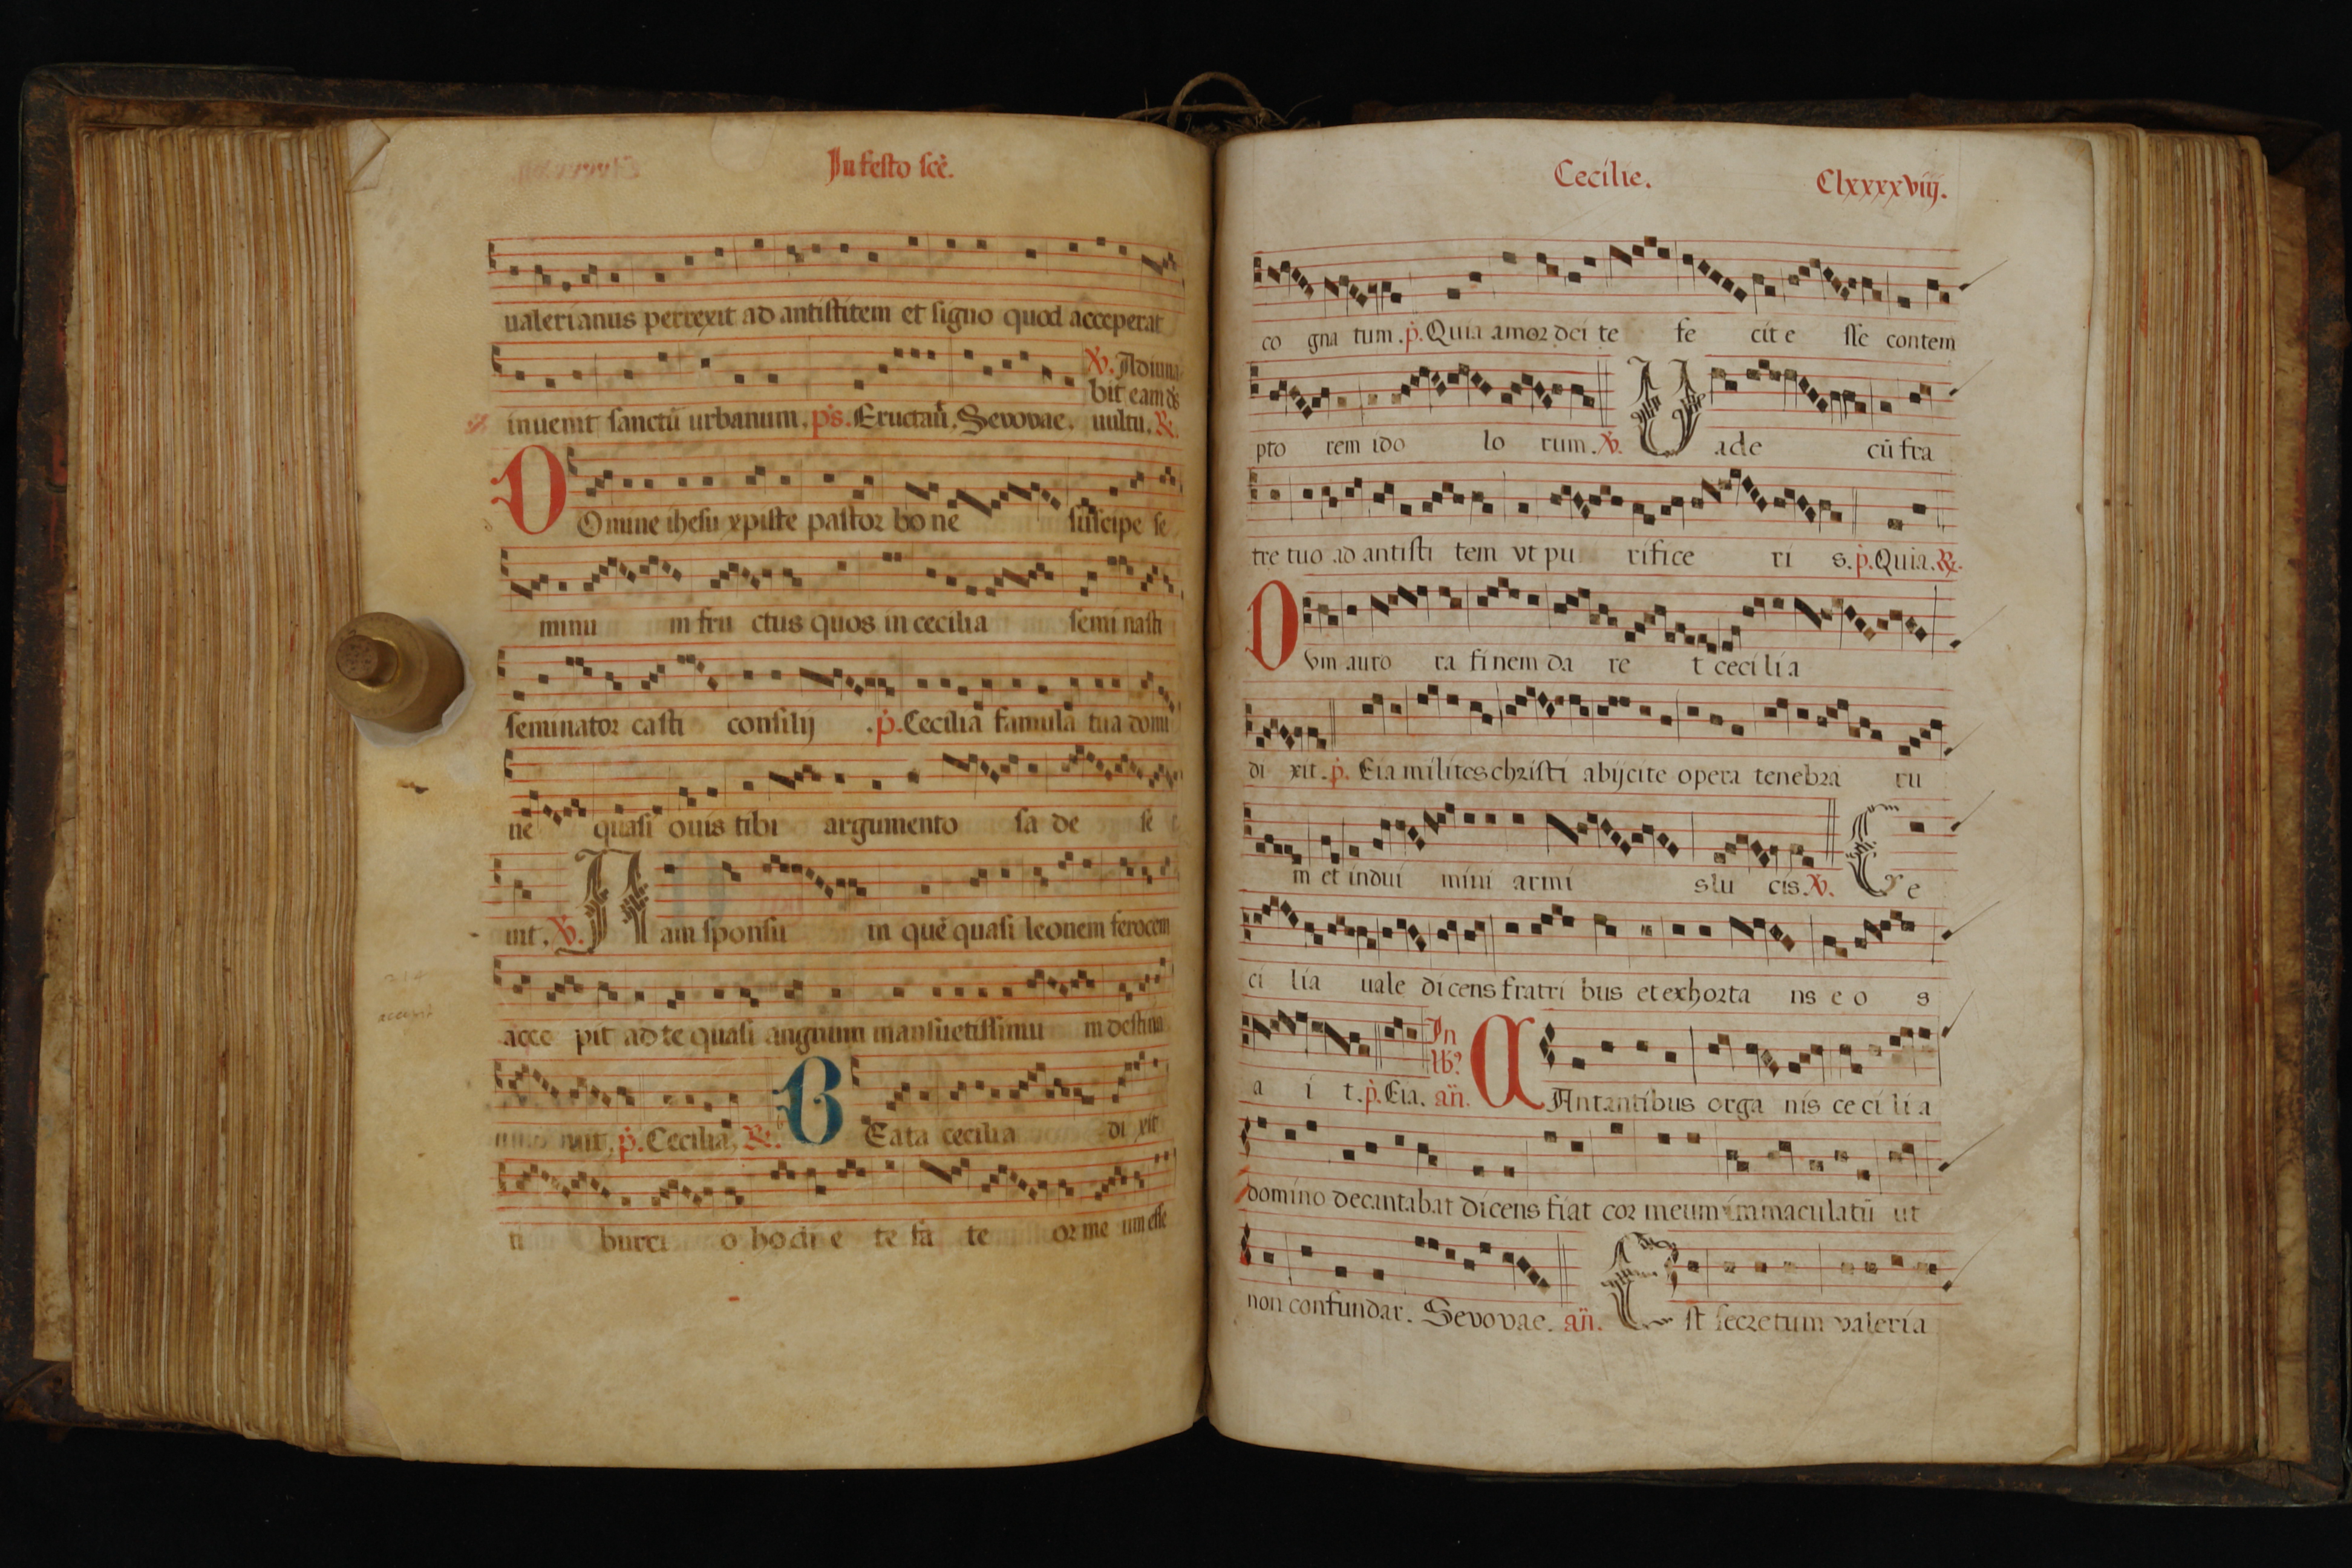 In festo scē.
ualerianus perrexit ad antistitem et signo quod acceperat
℣. Adiuua
bit eam ds̄
inuenit sanctū urbanum. ps. Eructaū. Sevovae. uultu. ℟.
DOmine ihesu xpiste pastor bo ne suscipe se
minu m fru ctus quos in cecilia semi nasti
seminator casti consilij . p. Cecilia famula tua domi
ne quasi ouis tibi argumento sa de se
uit. ℣. Nam sponsu in quē quasi leonem ferocem
acce pit ad te quasi angnum mansuetissimu m destina
uit. p. Cecilia. ℟. BEata cecilia di xit
ti burci o hodi e te fa te or me um esse
Cecilie. Clxxxxviij.
co gna tum . p. Quia amor dei te fe cit e sse contem
pto rem ido lo rum. ℣. Uade cū fra
tre tuo ad antisti tem vt pu rifice ri s. p. Quia. ℟.
Dvm auro ra finem da re t ceci li a
di xit. p. Eia milites christi abijcite opera tenebra ru
m et indui mini armi s lu cis. ℣. Ce
ci lia uale dicens fratri bus et exhorta ns e o s
a i t. p. Eia. an̄. In lb? CAntantibus orga nis ce ci li a
domino decantabat dicens fiat cor meum inmaculatū ut
non confundar. Sevovae. an̄. Est secretum valeria